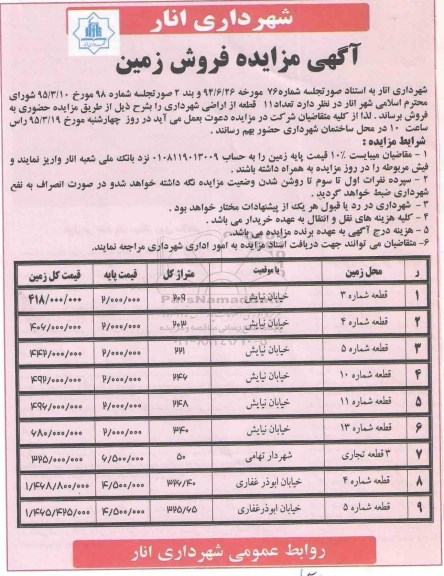 شهرداری انار
آگهی مزایده فروش زمین
شهرداری انار به استناد صورتجلسه شماره ۷۶ مورخه ۹۴/۶/۲۶ و بند ۲ صورتجلسه شماره ۹۸ مورخ ۹۵/۳/۱۰ شورای
محترم اسلامی شهر انار در نظر دارد تعداد۱۱ قطعه از اراضی شهرداری را بشرح ذیل از طریق مزایده حضوری به
فروش برساند . لذا از کلیه متقاضیان شرکت در مزایده دعوت بعمل می آید در روز چهارشنبه مورخ ۹۵/۳/۱۹ راس
ساعت ۱۰ در محل ساختمان شهرداری حضور بهم رسانند .
شرایط مزایده :
۱ - متقاضیان میبایست ۱۰٪ قیمت پایه زمین را به حساب ۰۱۰۸۱۱۹۰۱۳۰۰۹ نزد بانک ملی شعبه انار واریز نمایند و
فیش مربوطه را در روز مزایده به همراه داشته باشند .
۲ - سپرده نفرات اول تا سوم تا روشن شدن وضعیت مزایده نگه داشته خواهد شدو در صورت انصراف به نفع
شهرداری ضبط خواهد گردید .
۳ - شهرداری در رد یا قبول هر یک از پیشنهادات مختار خواهد بود .
۴ - کلیه هزینه های نقل و انتقال به عهده خریدار می باشد .
۵ - هزینه درج آگهی به عهده برنده مزایده می باشد.
۶- متقاضیان می توانند جهت دریافت اسناد مزایده به امور اداری شهرداری مراجعه نمایند.
ر محل زمین با موقعیت متراژ کل قیمت پایه قیمت کل زمین
۱ قطعه شماره ۳ خیابان نیایش ۲۰۹ ۲/۰۰۰/۰۰۰ ۴۱۸/۰۰۰/۰۰۰
۲ قطعه شماره ۴ خیابان نیایش ۲۰۳ ۲/۰۰۰/۰۰۰ ۴۰۶/۰۰۰/۰۰۰
۳ قطعه شماره ۵ خیابان نیایش ۲۲۱ ۲/۰۰۰/۰۰۰ ۴۴۲/۰۰۰/۰۰۰
۴ قطعه شماره ۱۰ خیابان نیایش ۲۴۶ ۲/۰۰۰/۰۰۰ ۴۹۲/۰۰۰/۰۰۰
۵ قطعه شماره ۱۱ خیابان نیایش ۲۴۸ ۲/۰۰۰/۰۰۰ ۴۹۶/۰۰۰/۰۰۰
۶ قطعه شماره ۱۳ خیابان نیایش ۳۴۰ ۲/۰۰۰/۰۰۰ ۶۸۰/۰۰۰/۰۰۰
۷ ۳ قطعه تجاری شهردار تهامی ۵۰ ۶/۵۰۰/۰۰۰ ۳۲۵/۰۰۰/۰۰۰
۸ قطعه شماره ۴ خیابان ابوذر غفاری ۳۲۶/۴۰ ۴/۵۰۰/۰۰۰ ۱/۴۶۸/۸۰۰/۰۰۰
۹ قطعه شماره ۵ خیابان ابوذرغفاری ۳۲۵/۶۵ ۴/۵۰۰/۰۰۰ ۱/۴۶۵/۴۲۵/۰۰۰
روابط عمومی شهرداری انار